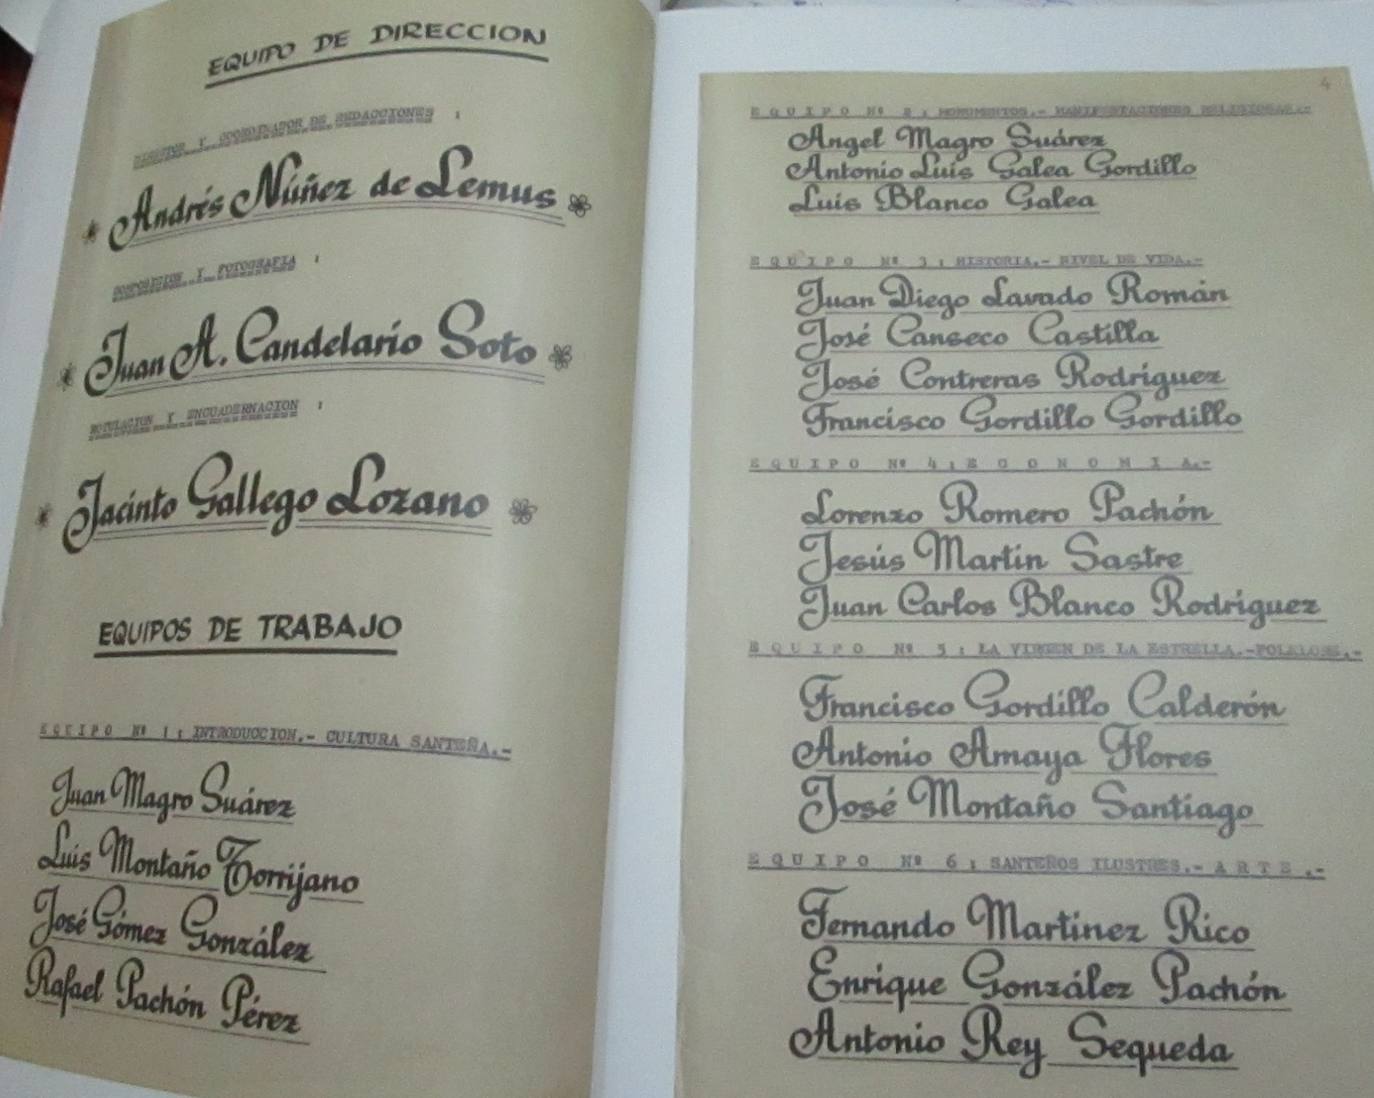 EQUIPO DE DIRECCION
DIRECTOR Y COORDINADOR DE REDACCIONES :
Andrés Núñez de Lemus
COMPOSICION Y FOTOGRAFIA :
Juan A. Candelario Soto
ROTULACION Y ENCUADERNACION :
Jacinto Gallego Lozano
EQUIPOS DE TRABAJO
EQUIPO Nº 1 : INTRODUCCION.- CULTURA SANTEÑA.-
Juan Magro Suárez
Luis Montaño Torrijano
José Gómez González
Rafael Pachón Pérez
4
EQUIPO Nº 2 : MONUMENTOS.- MANIFESTACIONES RELIGIOSAS.-
Angel Magro Suárez
Antonio Luis Galea Gordillo
Luis Blanco Galea
EQUIPO Nº 3 : HISTORIA.- NIVEL DE VIDA.-
Juan Diego Lavado Román
José Canseco Castilla
José Contreras Rodríguez
Francisco Gordillo Gordillo
EQUIPO Nº 4 : ECONOMIA.-
Lorenzo Romero Pachón
Jesús Martín Sastre
Juan Carlos Blanco Rodríguez
EQUIPO Nº 5 : LA VIRGEN DE LA ESTRELLA.-FOLKLORE.-
Francisco Gordillo Calderón
Antonio Amaya Flores
José Montaño Santiago
EQUIPO Nº 6 : SANTEÑOS ILUSTRES.- ARTE.-
Fernando Martínez Rico
Enrique González Pachón
Antonio Rey Sequeda